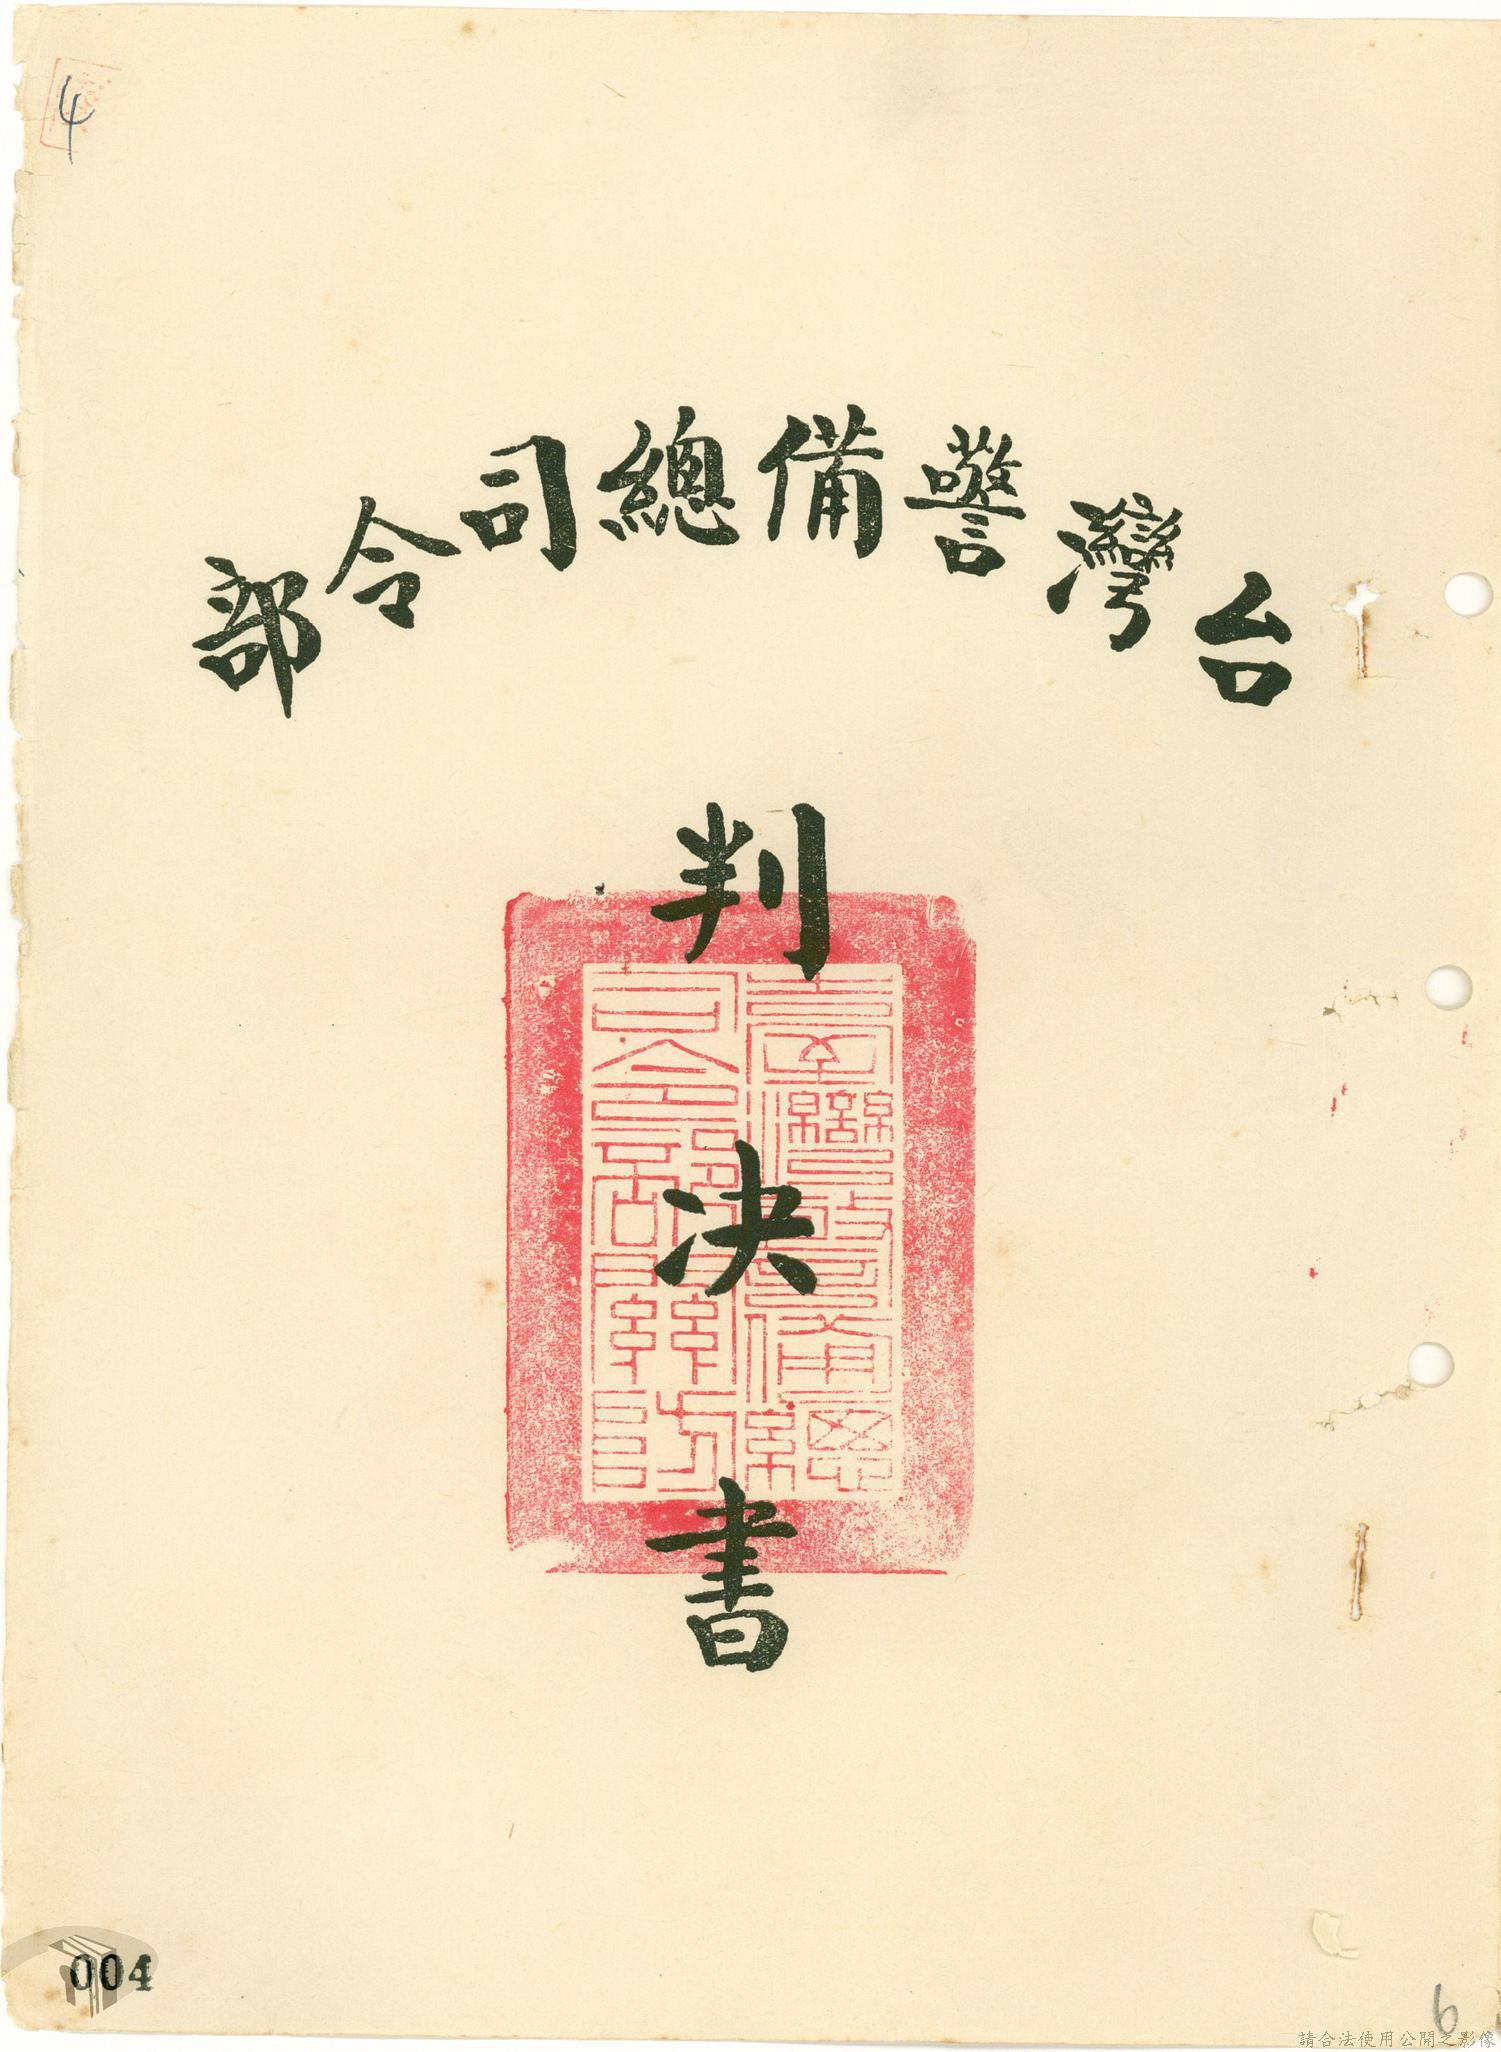 4
台灣警備總司令部
判決書
臺灣警備總
司令部軍法處關防
004
6
請合法使用公開之影像